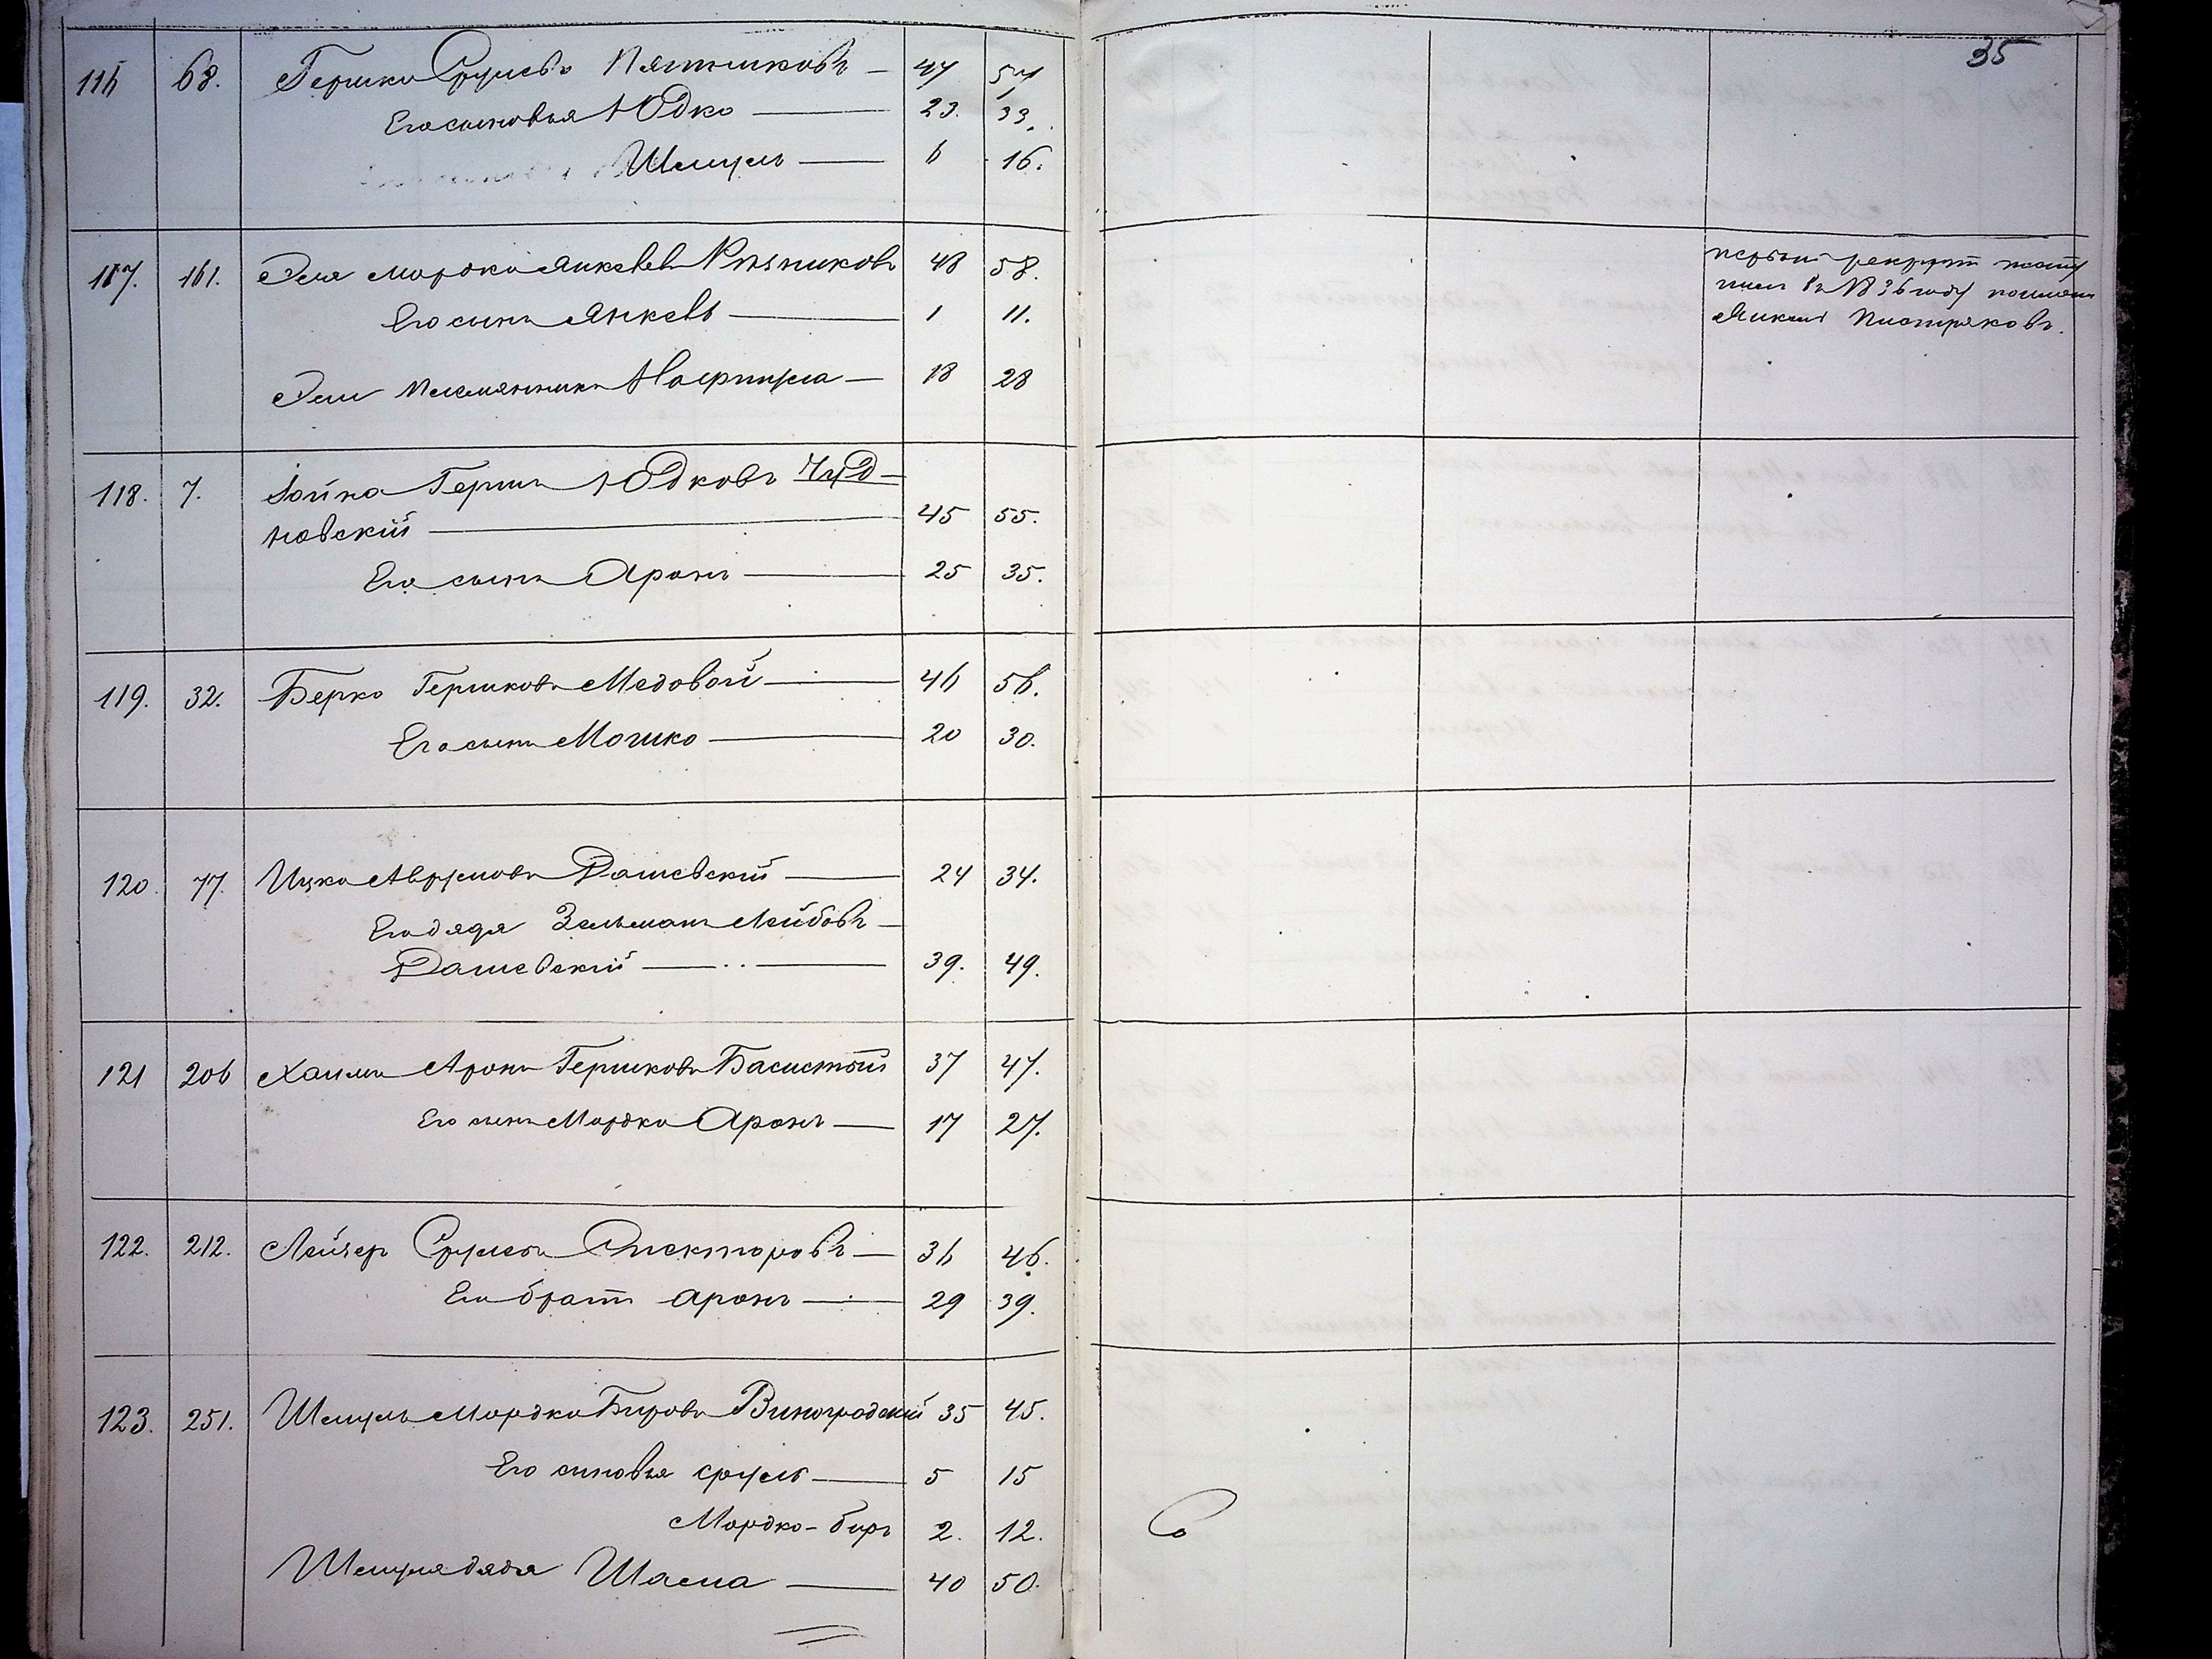 35
116 68. Гершко Срулевъ Пятниковъ — 47 57
Его сыновья Юдко — 23. 33.
Шмуль — 6 16.
117. 161. Эля Мордко Янкелев Резниковъ 48 58.
Его сынъ Янкель — 1 11.
Эли племянникъ — 18 28
первый рекрут
въ 1836 году
118. 7. Гершъ Юдковъ Чуд-
новскій — 45 55.
Его сынъ Аронъ — 25 35.
119. 32. Берко Гершковъ Медовой — 46 56.
Его сынъ Мошко — 20 30.
120. 77. Ицко Аврумовъ Дашевскій — 24 34.
Его дядя Зельманъ Лейбовъ —
Дашевскій — 39. 49.
121 206 Хаимъ Аронъ Гершковъ Басистый 37 47.
Его сынъ Мордко Аронъ — 17 27.
122. 212. Лейзер Срулевъ Спекторовъ — 36 46.
Его братъ Аронъ — 29 39.
123. 251. Шмуль Мордко Бировъ Виноградскій 35 45.
Его сыновья Сруль — 5 15
Мордко-биръ 2. 12.
Шмуля дядя Шама — 40 50.